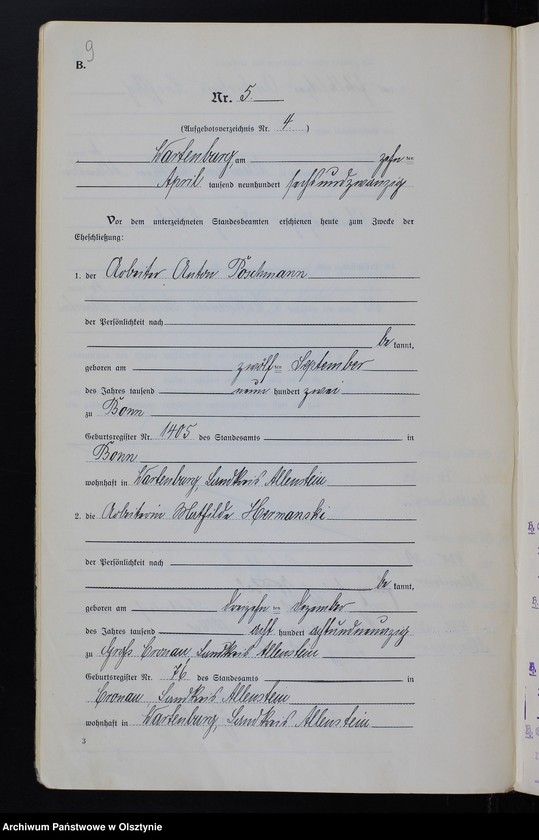 9
B.
Nr. 5.
(Aufgebotsverzeichnis Nr. 4)
Wartenburg, am zehn ten
April tausend neunhundert sechsundzwanzig
Vor dem unterzeichneten Standesbeamten erschienen heute zum Zwecke der
Eheschließung:
1. der Arbeiter Anton Pöschmann
der Persönlichkeit nach
be kannt,
geboren am zwölf ten September
des Jahres tausend neun hundert zwei
zu Bonn
Geburtsregister Nr. 1405 des Standesamts in
Bonn
wohnhaft in Wartenburg, Landkreis Allenstein
2. die Arbeiterin Mathilde Hermanski
der Persönlichkeit nach
be kannt,
geboren am dreizehn ten Dezember
des Jahres tausend acht hundert achtundneunzig
zu Groß Cronau Landkreis Allenstein
Geburtsregister Nr. 76 des Standesamts in
Cronau Landkreis Allenstein
wohnhaft in Wartenburg, Landkreis Allenstein
3
Archiwum Państwowe w Olsztynie